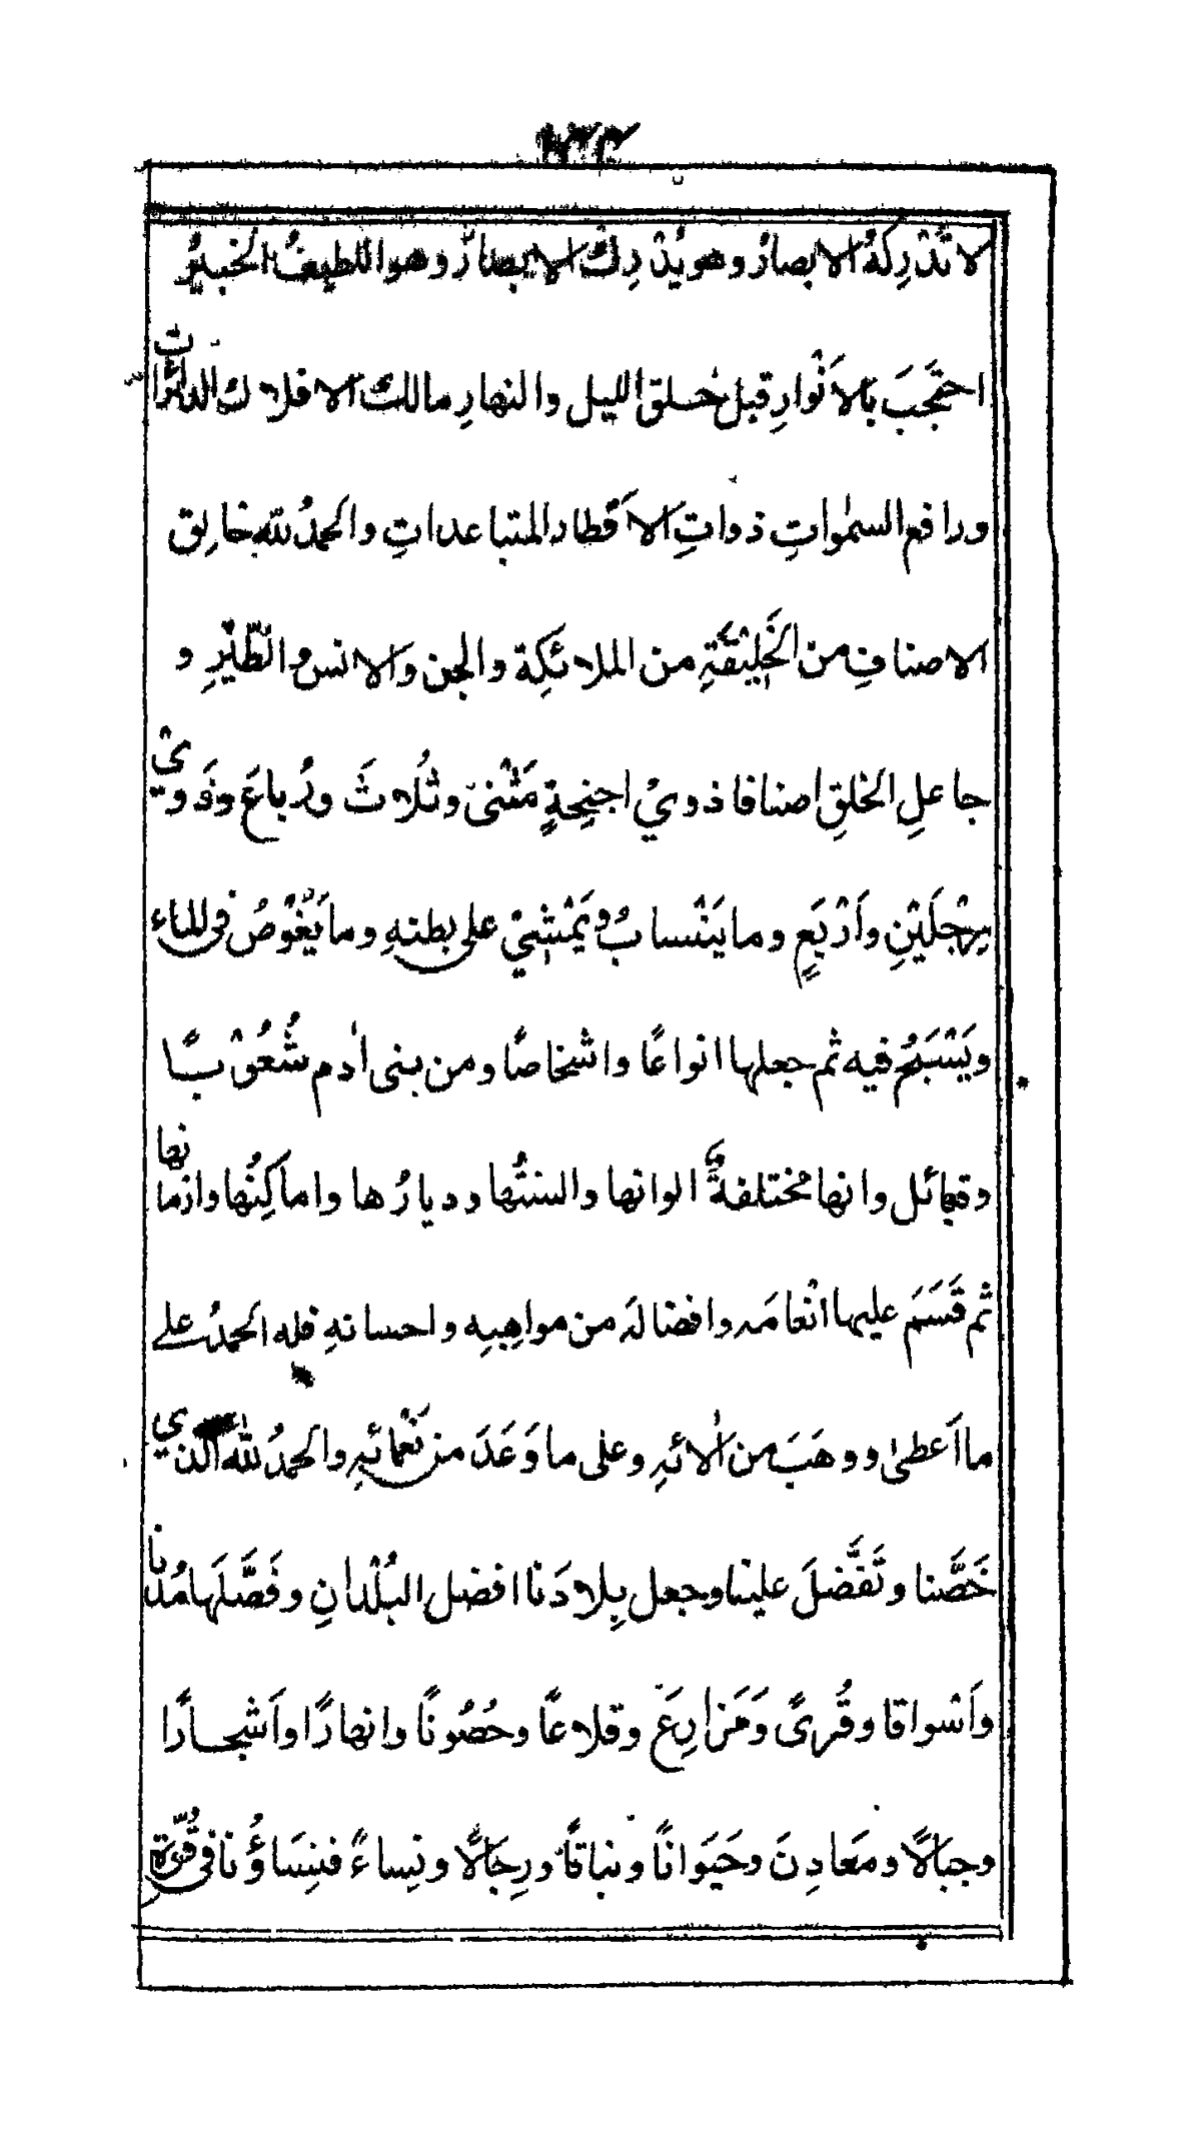 لا تُدْرِكُهُ الابصارُ وهو يُدْرِكُ الابصارَ وهو اللطيفُ الخبيرُ
احتَجَبَ بالاَنْوارِ قبل خلق الليل والنهارِ مالك الافلاك الدائرات
ورافع السمٰواتِ ذواتِ الاَقْطار المتباعداتِ والحمدُ للهِ خالِق
الاصنافِ من الخَلِيْقَةِ من الملائكِة والجن والانس والطَّيْرِ و
جاعلِ الخلقِ اصنافا ذويْ اجنِحةٍ مَثْنىٰ وثُلاثَ ورُباعَ وذَوِيْ
رِجْلَيْنِ واَرْبَعٍ وما يَنْسابُ ويَمْشِيْ على بطنهِ وما يَغُوْصُ فى الماء
ويَسْبَحُ فيه ثم جعلها انواعًا واشخاصًا ومن بنى اٰدم شُعُوْبًا
وقبائل وانها مختلفةٌ الوانها والسنتُها وديارُها واماكِنُها وازمانها
ثم قَسَمَ عليها انْعامَه وافضالَه من مواهِبِه واحسانهِ فله الحمدُ على
ما اَعطىٰ ووهَبَ من اٰلائهِ وعلى ما وَعَدَ من نَعْمائِهِ والحمدُ لله الذي
خَصَّنا وتَفَضَّلَ علينا وجعل بِلادَنا افضل البُلْدانِ وفَصَّلَها مُدُنا
واَسْواقا وقُرىً وَمَزارِعَ وقلاعًا وحُصُونًا وانهارًا واَشجارًا
وجبالاً ومَعادِنَ وحَيَوانًا ونباتًا ورِجَالًا ونِساءً فنِسَاؤُنا فى قُرَّة